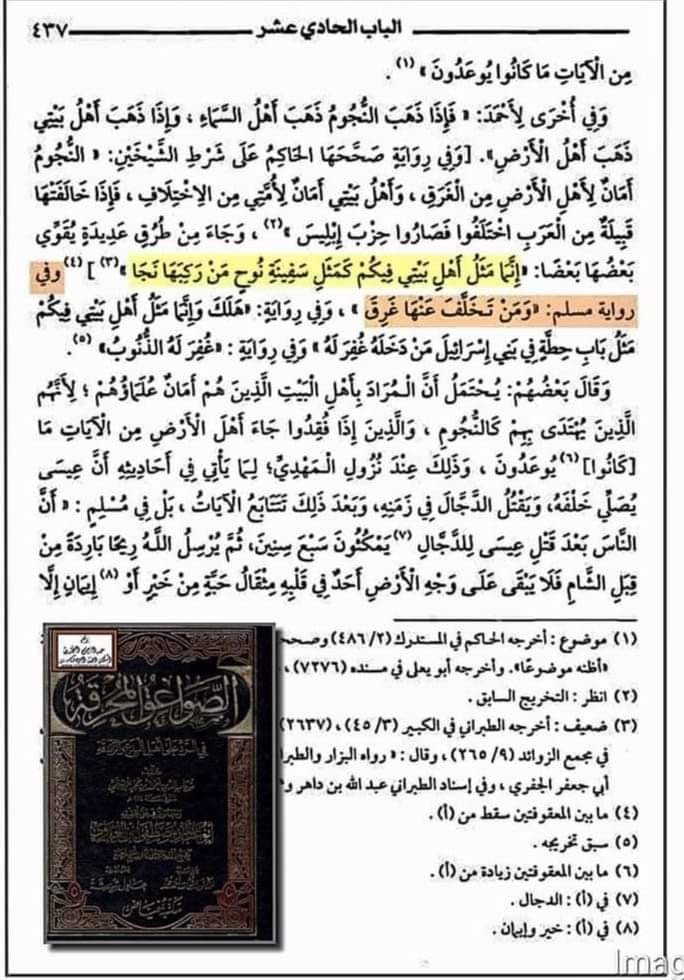 الباب الحادي عشر ٤٣٧
مِنَ الْآيَاتِ مَا كَانُوا يُوعَدُونَ» (١) .
وَفِي أُخْرَى لِأَحْمَدَ: «فَإِذَا ذَهَبَ النُّجُومُ ذَهَبَ أَهْلُ السَّمَاءِ ، وَإِذَا ذَهَبَ أَهْلُ بَيْتِي
ذَهَبَ أَهْلُ الْأَرْضِ». [وَفِي رِوَايَةٍ صَحَّحَهَا الحَاكِمُ عَلَى شَرْطِ الشَّيْخَيْنِ: «النُّجُومُ
أَمَانٌ لِأَهْلِ الْأَرْضِ مِنَ الْغَرَقِ ، وَأَهْلُ بَيْتِي أَمَانٌ لِأُمَّتِي مِنَ الِاخْتِلَافِ ، فَإِذَا خَالَفَتْهَا
قَبِيلَةٌ مِنَ الْعَرَبِ اخْتَلَفُوا فَصَارُوا حِزْبَ إِبْلِيسَ» (٢) ، وَجَاءَ مِنْ طُرُقٍ عَدِيدَةٍ يُقَوِّي
بَعْضُهَا بَعْضًا: «إِنَّمَا مَثَلُ أَهْلِ بَيْتِي فِيكُمْ كَمَثَلِ سَفِينَةِ نُوحٍ مَنْ رَكِبَهَا نَجَا» (٣) ] (٤) وفي
رواية مسلم: «وَمَنْ تَخَلَّفَ عَنْهَا غَرِقَ» ، وَفِي رِوَايَةٍ: «هَلَكَ وَإِنَّمَا مَثَلُ أَهْلِ بَيْتِي فِيكُمْ
مَثَلُ بَابِ حِطَّةٍ فِي بَنِي إِسْرَائِيلَ مَنْ دَخَلَهُ غُفِرَ لَهُ» وَفِي رِوَايَةٍ : «غُفِرَ لَهُ الذُّنُوبُ» (٥).
وَقَالَ بَعْضُهُمْ: يُحْتَمَلُ أَنَّ الْمُرَادَ بِأَهْلِ الْبَيْتِ الَّذِينَ هُمْ أَمَانٌ عُلَمَاؤُهُمْ ؛ لِأَنَّهُم
الَّذِينَ يُهْتَدَى بِهِمْ كَالنُّجُومِ ، وَالَّذِينَ إِذَا فُقِدُوا جَاءَ أَهْلَ الْأَرْضِ مِنَ الْآيَاتِ مَا
[كَانُوا] (٦) يُوعَدُونَ ، وَذَلِكَ عِنْدَ نُزُولِ الْمَهْدِيِّ؛ لِمَا يَأْتِي فِي أَحَادِيثِهِ أَنَّ عِيسَى
يُصَلِّي خَلْفَهُ، وَيَقْتُلُ الدَّجَّالَ فِي زَمَنِهِ، وَبَعْدَ ذَلِكَ تَتَتَابَعُ الْآيَاتُ ، بَلْ فِي مُسْلِمٍ : «أَنَّ
النَّاسَ بَعْدَ قَتْلِ عِيسَى لِلدَّجَّالِ (٧) يَمْكُثُونَ سَبْعَ سِنِينَ، ثُمَّ يُرْسِلُ اللَّهُ رِيحًا بَارِدَةً مِنْ
قِبَلِ الشَّامِ فَلَا يَبْقَى عَلَى وَجْهِ الْأَرْضِ أَحَدٌ فِي قَلْبِهِ مِثْقَالُ حَبَّةٍ مِنْ خَيْرٍ أَوْ (٨) إِيمَانٍ إِلَّا
(١) موضوع : أخرجه الحاكم في المستدرك (٢/ ٤٨٦) وصحح
«أظنه موضوعًا». وأخرجه أبو يعلى في مسنده (٧٢٧٦) ،
(٢) انظر : التخريج السابق .
(٣) ضعيف : أخرجه الطبراني في الكبير (٣/ ٤٥) ، (٢٦٣٧)
في مجمع الزوائد (٩/ ٢٦٥) ، وقال : «رواه البزار والطبرا
أبي جعفر الجفري ، وفي إسناد الطبراني عبد الله بن داهر و
(٤) ما بين المعقوفتين سقط من (أ) .
(٥) سبق تخريجه .
(٦) ما بين المعقوفتين زيادة من (أ) .
(٧) في (أ) : الدجال .
(٨) في (أ) : خير وإيمان .
الصواعق المحرقة
Imag